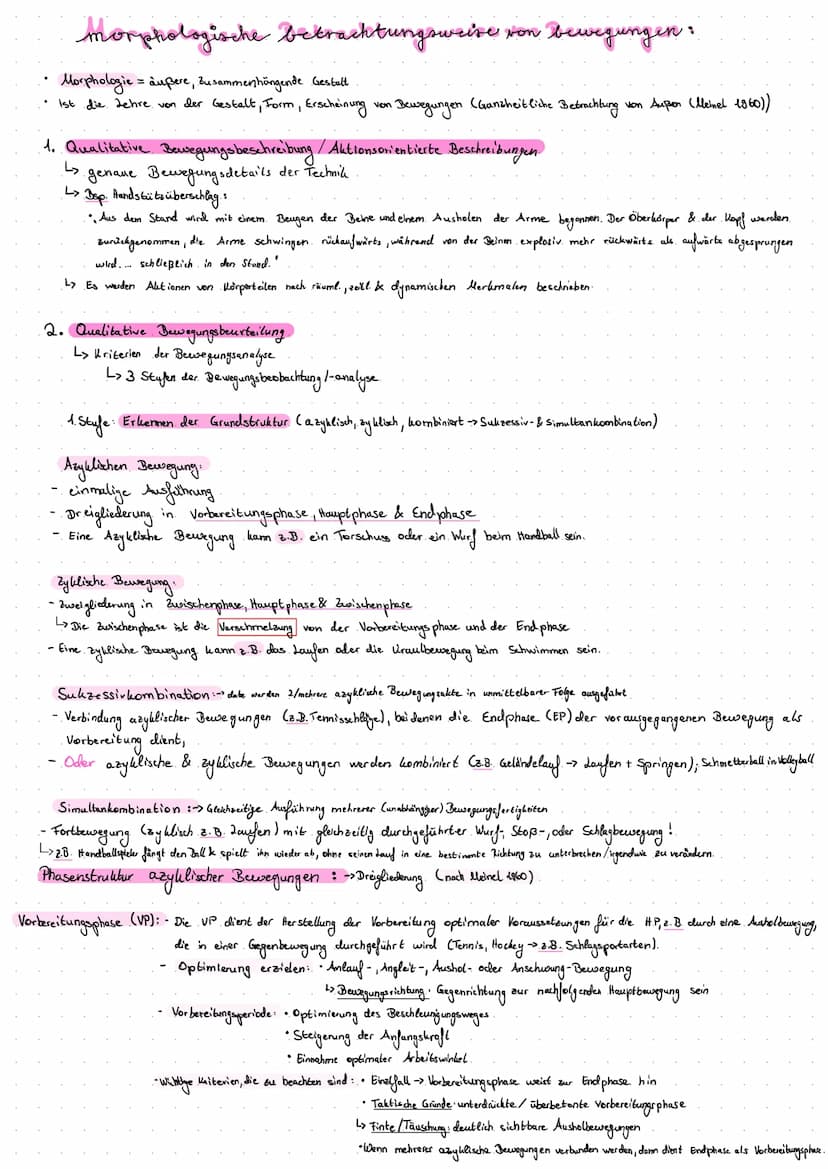 Morphologische Betrachtungsweise von Bewegungen:
• Morphologie = äußere, zusammenhängende Gestalt
• Ist die Lehre von der Gestalt, Form, Erscheinung von Bewegungen (Ganzheitliche Betrachtung von Außen (Meinel 1960))
1. Qualitative Bewegungsbeschreibung / Aktionsorientierte Beschreibungen
↳ genaue Bewegungsdetails der Technik
↳ Bsp. Handstützüberschlag:
"Aus dem Stand wird mit einem Beugen der Beine und einem Ausholen der Arme begonnen. Der Oberkörper & der Kopf werden
zurückgenommen, die Arme schwingen rückaufwärts, während von der Beinen explosiv mehr rückwärts als aufwärts abgesprungen
wird... schließlich in den Stand."
↳ Es werden Aktionen von Körperteilen nach räuml., zeitl. & dynamischen Merkmalen beschrieben.
2. Qualitative Bewegungsbeurteilung
↳ Kriterien der Bewegungsanalyse
↳ 3 Stufen der Bewegungsbeobachtung /-analyse
1. Stufe: Erkennen der Grundstruktur (azyklisch, zyklisch, kombiniert → Sukzessiv- & Simultankombination)
Azyklischen Bewegung:
- einmalige Ausführung
- Dreigliederung in Vorbereitungsphase, Hauptphase & Endphase
- Eine Azyklische Bewegung kann z.B. ein Torschuss oder ein Wurf beim Handball sein.
Zyklische Bewegung:
- Zweigliederung in Zwischenphase, Hauptphase & Zwischenphase
↳ Die Zwischenphase ist die Verschmelzung von der Vorbereitungsphase und der Endphase
- Eine zyklische Bewegung kann z.B. das Laufen oder die Kraulbewegung beim Schwimmen sein.
Sukzessivkombination: → dabei werden 2/mehrere azyklische Bewegungsakte in unmittelbarer Folge ausgeführt
- Verbindung azyklischer Bewegungen (z.B. Tennisschläge), bei denen die Endphase (EP) der vorausgegangenen Bewegung als
Vorbereitung dient,
- Oder azyklische & zyklische Bewegungen werden kombiniert (z.B. Geländelauf → Laufen + Springen); Schmetterball in Volleyball
Simultankombination: → Gleichzeitige Ausführung mehrerer (unabhängiger) Bewegungsfertigkeiten
- Fortbewegung (zyklisch z.B. Laufen) mit gleichzeitig durchgeführter Wurf-, Stoß-, oder Schlagbewegung!
↳ z.B. Handballspieler fängt den Ball & spielt ihn wieder ab, ohne seinen Lauf in eine bestimmte Richtung zu unterbrechen/irgendwie zu verändern.
Phasenstruktur azyklischer Bewegungen: → Dreigliederung (nach Meinel 1960)
Vorbereitungsphase (VP): - Die VP dient der Herstellung der Vorbereitung optimaler Voraussetzungen für die HP, z.B durch eine Ausholbewegung,
die in einer Gegenbewegung durchgeführt wird (Tennis, Hockey → z.B. Schlagsportarten).
- Optimierung erzielen: • Anlauf-, Angleit-, Aushol- oder Anschwung-Bewegung
↳ Bewegungsrichtung: Gegenrichtung zur nachfolgenden Hauptbewegung sein
- Vorbereitungsperiode: • Optimierung des Beschleunigungsweges
• Steigerung der Anfangskraft
• Einnahme optimaler Arbeitswinkel
- Wichtige Kriterien, die zu beachten sind: • Einzelfall → Vorbereitungsphase weist zur Endphase hin
• Taktische Gründe: unterdrückte / überbetonte Vorbereitungsphase
↳ Finte/Täuschung: deutlich sichtbare Ausholbewegungen
• Wenn mehrere azyklische Bewegungen verbunden werden, dann dient Endphase als Vorbereitungsphase.